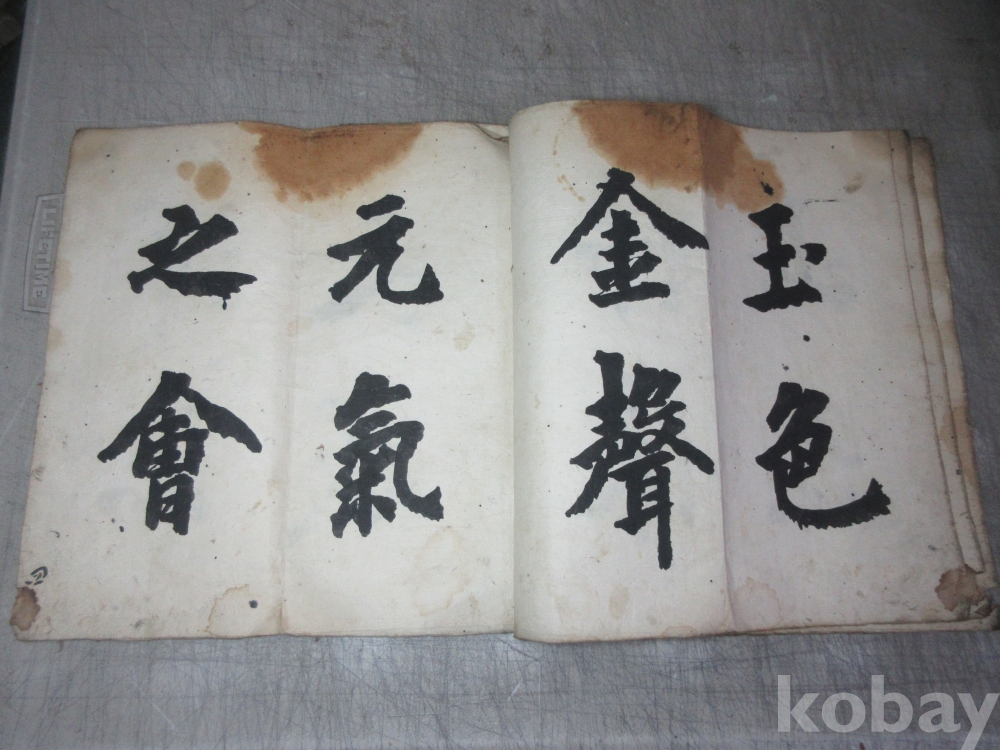 玉色
金聲
元氣
之會
四
kobay